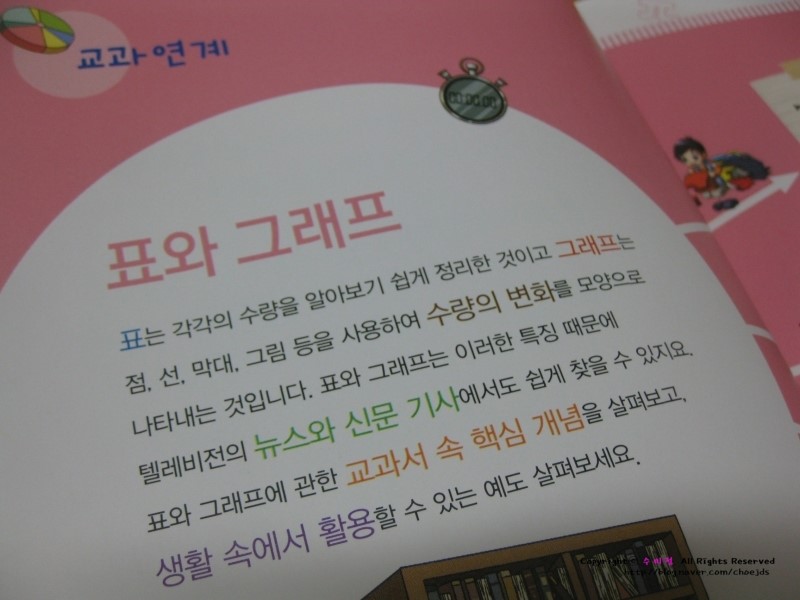 교과연계
00:00:00
표와 그래프
표는 각각의 수량을 알아보기 쉽게 정리한 것이고 그래프는
점, 선, 막대, 그림 등을 사용하여 수량의 변화를 모양으로
나타내는 것입니다. 표와 그래프는 이러한 특징 때문에
텔레비전의 뉴스와 신문 기사에서도 쉽게 찾을 수 있지요.
표와 그래프에 관한 교과서 속 핵심 개념을 살펴보고,
생활 속에서 활용할 수 있는 예도 살펴보세요.
All Rights Reserved
http://blog.naver.com/choejds